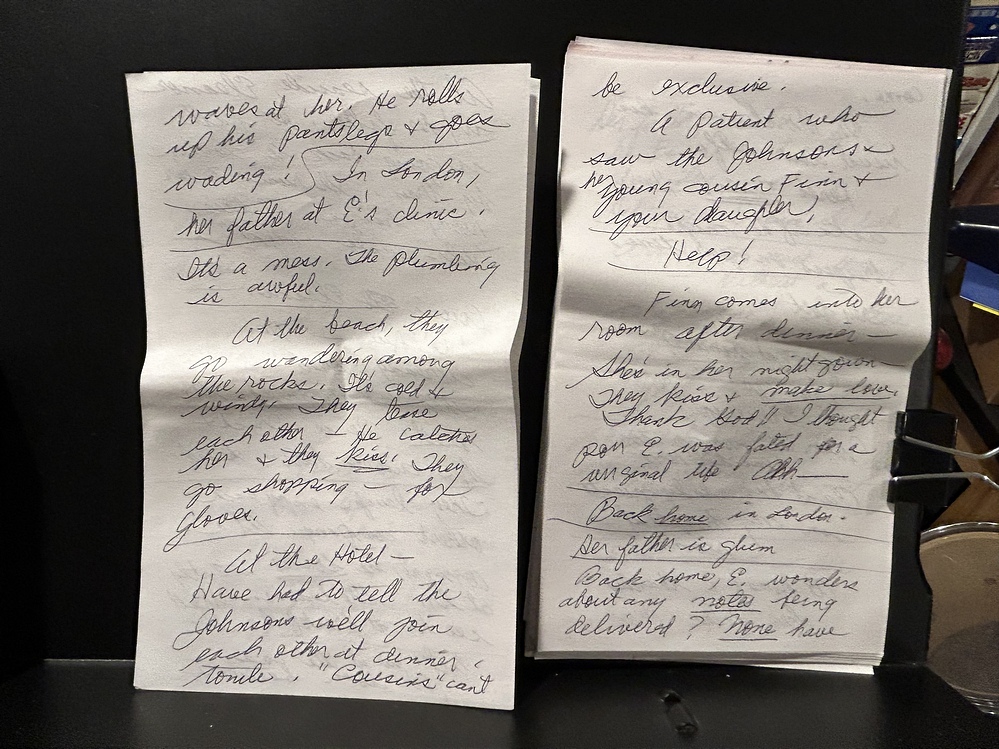 waves at her. He rolls
up his pantslegs & goes
wading! In London,
her father at E's clinic.
It's a mess. The plumbing
is awful.
At the beach, they
go wandering among
the rocks. It's cold &
windy. They tease
each other — He catches
her & they kiss. They
go shopping — for
gloves.
At the Hotel —
Have had to tell the
Johnsons we'll join
each other at dinner,
tonite. "Cousins" can't
be exclusive.
A patient who
saw the Johnsons &
her young cousin Finn &
your daughter!
Help!
Finn comes into her
room after dinner —
She's in her nightgown
They kiss & make love.
Thank God!! I thought
poor E. was fated for a
virginal life Ahh—
Back home in London.
Her father is glum
Back home, E. wonders
about any notes being
delivered? None have